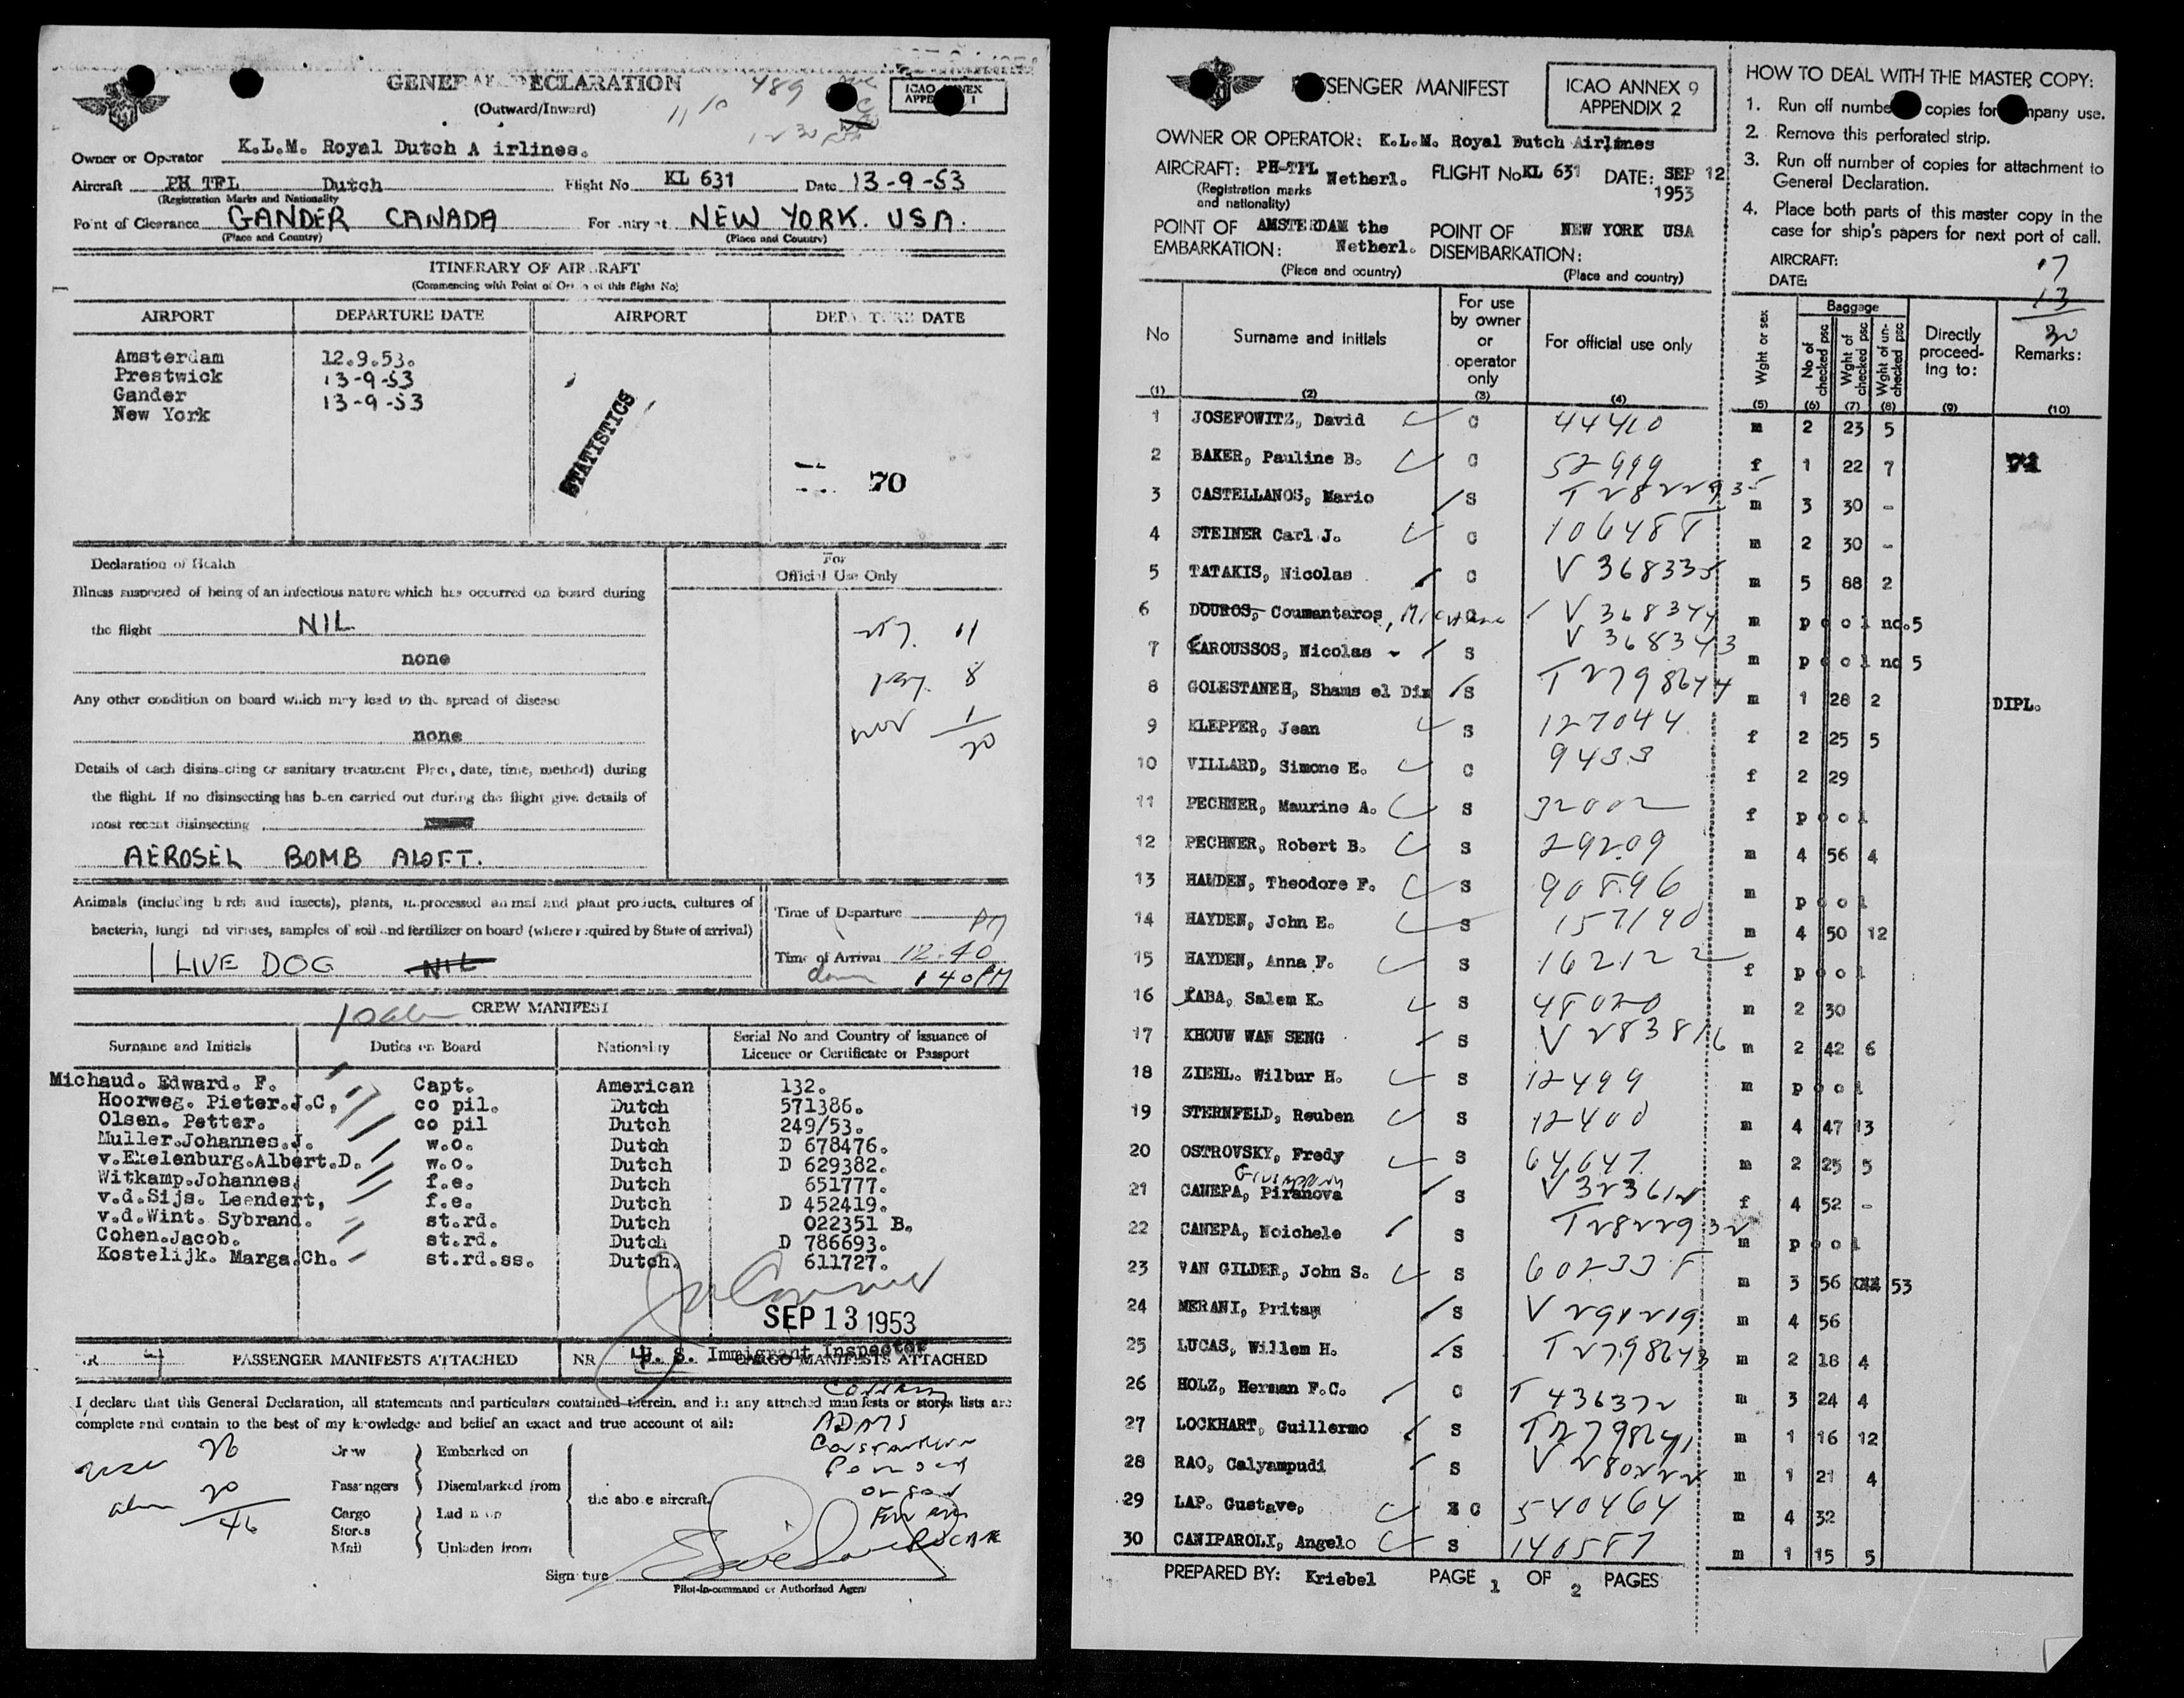 GENERAL DECLARATION
(Outward/Inward)
11 10
489
ICAO ANNEX
APPE 1
Owner or Operator K.L.M. Royal Dutch A irlines.
Aircraft PH TFL Dutch Flight No KL 631 Date 13-9-53
(Registration Marks and Nationality
Point of Clearance GANDER CANADA For ntry at NEW YORK. USA.
(Place and Country) (Place and Country)
ITINERARY OF AIRCRAFT
(Commencing with Point of Origin of this flight No)
AIRPORT DEPARTURE DATE AIRPORT DEPARTURE DATE
Amsterdam 12.9.53.
Prestwick 13-9-53
Gander 13-9-53
New York
STATISTICS
70
Declaration of Health
For
Official Use Only
Illness suspected of being of an infectious nature which has occurred on board during
the flight NIL
none
11
8
1
20
Any other condition on board which may lead to the spread of disease
none
Details of each disinsecting or sanitary treatment Place, date, time, method) during
the flight. If no disinsecting has been carried out during the flight give details of
most recent disinsecting
AEROSEL BOMB ALOFT.
Animals (including birds and insects), plants, unprocessed animal and plant products, cultures of
bacteria, fungi and viruses, samples of soil and fertilizer on board (where required by State of arrival)
1 LIVE DOG NIL
Time of Departure PM
Time of Arrival 12.40
down 1 40 PM
CREW MANIFEST
Surname and Initials Duties on Board Nationality Serial No and Country of issuance of
Licence or Certificate or Passport
Michaud. Edward. F. Capt. American 132.
Hoorweg. Pieter.J.C, co pil. Dutch 571386.
Olsen. Petter. co pil Dutch 249/53.
Muller.Johannes.J. w.o. Dutch D 678476.
v.Ekelenburg.Albert.D. w.o. Dutch D 629382.
Witkamp.Johannes. f.e. Dutch 651777.
v.d.Sijs. Leendert, f.e. Dutch D 452419.
v.d.Wint. Sybrand. st.rd. Dutch 022351 B.
Cohen.Jacob. st.rd. Dutch D 786693.
Kostelijk. Marga.Ch. st.rd.ss. Dutch. 611727.
SEP 13 1953
U. S. Immigrant Inspector
PASSENGER MANIFESTS ATTACHED NR CARGO MANIFESTS ATTACHED
I declare that this General Declaration, all statements and particulars contained therein, and in any attached manifests or stores lists are
complete and contain to the best of my knowledge and belief an exact and true account of all:
ADAMS
26
Crew Embarked on
Passengers Disembarked from
the above aircraft.
alien 20
46
Cargo Laden on
Stores
Mail Unladen from
Signature
Pilot-in-command or Authorized Agent
PASSENGER MANIFEST
ICAO ANNEX 9
APPENDIX 2
OWNER OR OPERATOR: K.L.M. Royal Dutch Airlines
AIRCRAFT: PH-TFL Netherl. FLIGHT No KL 631 DATE: SEP 12
1953
(Registration marks
and nationality)
POINT OF EMBARKATION: AMSTERDAM the Netherl. POINT OF DISEMBARKATION: NEW YORK USA
(Place and country) (Place and country)
HOW TO DEAL WITH THE MASTER COPY:
1. Run off number copies for company use.
2. Remove this perforated strip.
3. Run off number of copies for attachment to
General Declaration.
4. Place both parts of this master copy in the
case for ship's papers for next port of call.
AIRCRAFT:
DATE:
17
13
30
No Surname and initials For use by owner or operator only For official use only Wght or sex Baggage No of checked psc Wght of checked psc Wght of un-checked psc Directly proceed-ing to: Remarks:
(1) (2) (3) (4) (5) (6) (7) (8) (9) (10)
1 JOSEFOWITZ, David C 44410 m 2 23 5
2 BAKER, Pauline B. C 52999 f 1 22 7 71
3 CASTELLANOS, Mario S T 2822935 m 3 30 -
4 STEINER Carl J. C 106488 m 2 30 -
5 TATAKIS, Nicolas C V 368335 m 5 88 2
6 DOUROS, Coumantaros, V 368344 m pool no.5
7 KAROUSSOS, Nicolas S V 368343 m pool no 5
8 GOLESTANEH, Shams el Din S T 2798644 m 1 28 2 DIPL.
9 KLEPPER, Jean S 127044 f 2 25 5
10 VILLARD, Simone E. C 9433 f 2 29
11 PECHNER, Maurine A. S 32002 f pool
12 PECHNER, Robert B. S 29209 m 4 56 4
13 HAYDEN, Theodore F. S 90896 m pool
14 HAYDEN, John E. S 157190 m 4 50 12
15 HAYDEN, Anna F. S 162122 f pool
16 KABA, Salem K. S 48020 m 2 30
17 KHOUW WAN SENG S V 283816 m 2 42 6
18 ZIEHL. Wilbur H. S 12499 m pool
19 STERNFELD, Reuben S 12400 m 4 47 13
20 OSTROVSKY, Fredy S 64647 m 2 25 5
21 CANEPA, Piranova S V 323612 f 4 52 -
22 CANEPA, Noichele S T 2822932 m pool
23 VAN GILDER, John S. S 60233 m 3 56 53
24 MERANI, Pritam S V 291219 m 4 56
25 LUCAS, Willem H. S T 2798643 m 2 18 4
26 HOLZ, Herman F.C. C T 436372 m 3 24 4
27 LOCKHART, Guillermo S T 2798641 m 1 16 12
28 RAO, Calyampudi S V 280222 m 1 21 4
29 LAP. Gustave, C 540464 m 4 32
30 CANIPAROLI, Angelo S 140587 m 1 15 5
PREPARED BY: Kriebel PAGE 1 OF 2 PAGES